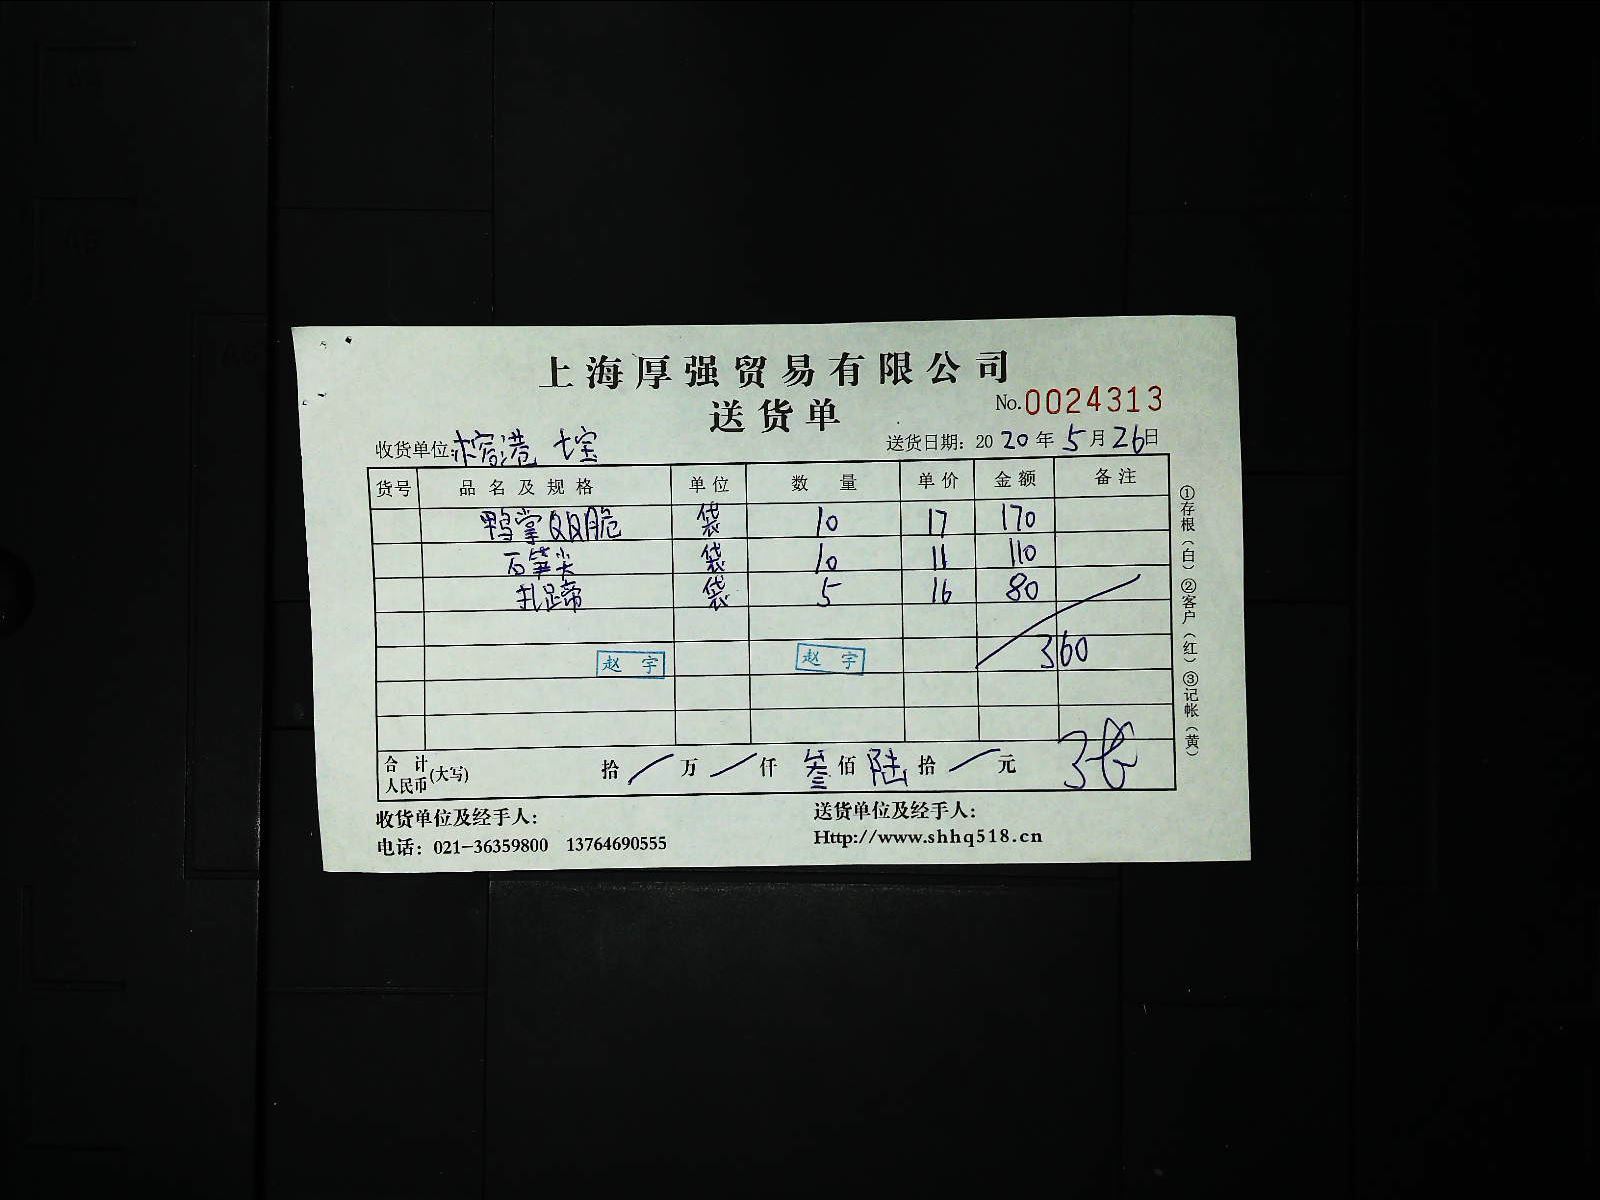 上海厚强贸易有限公司
送货单
No.0024313
收货单位:榕港 七宝
送货日期: 2020年5月26日
货号 品名及规格 单位 数量 单价 金额 备注
鸭掌QQ脆 袋 10 17 170
石笋尖 袋 10 11 110
扎蹄 袋 5 16 80
360
赵宇 赵宇
合计人民币(大写) 拾/万/仟叁佰陆拾/元
收货单位及经手人:
送货单位及经手人:
电话: 021-36359800 13764690555
Http://www.shhq518.cn
①存根(白)②客户(红)③记帐(黄)